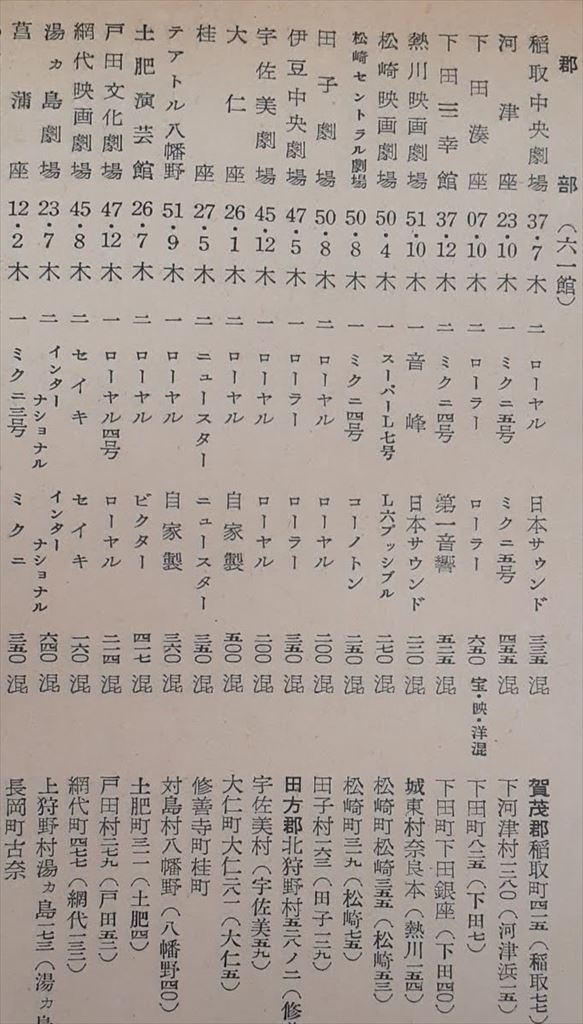 郡部（六一館）
稲取中央劇場 37・7 木 二 ローヤル 日本サウンド 三三五 混 賀茂郡稲取町四一五（稲取七七）
河津座 23・10 木 一 ミクニ五号 ミクニ五号 四五五 混 下河津村二八〇（河津浜一五）
下田湊座 07・10 木 二 ローラー ローラー 六五〇 宝・映・洋混 下田町八二五（下田七）
下田三幸館 37・12 木 二 ミクニ四号 第一音響 五二五 混 下田町下田銀座（下田四〇）
熱川映画劇場 51・10 木 一 音峰 日本サウンド 二二〇 混 城東村奈良本（熱川一五四）
松崎映画劇場 50・4 木 一 スーパーL七号 L六プッシブル 二七〇 混 松崎町松崎三五五（松崎五三）
松崎セントラル劇場 50・8 木 一 ミクニ四号 コーノトン 二五〇 混 松崎町三一九（松崎七五）
田子劇場 50・8 木 二 ローヤル ローヤル 二〇〇 混 田子村一六三（田子一二九）
伊豆中央劇場 47・5 木 一 ローラー ローラー 三五〇 混 田方郡北狩野村五二八ノ二（修
宇佐美劇場 45・12 木 一 ローヤル ローヤル 二〇〇 混 宇佐美村（宇佐美五九）
大仁座 26・1 木 二 ローヤル 自家製 五〇〇 混 大仁町大仁六一（大仁五）
桂座 27・5 木 二 ニュースター ニュースター 三五〇 混 修善寺町桂町
テアトル八幡野 51・9 木 一 ローヤル 自家製 三六〇 混 対島村八幡野（八幡野四〇）
土肥演芸館 26・7 木 二 ローヤル ビクター 四一七 混 土肥町三二一（土肥四）
戸田文化劇場 47・12 木 一 ローヤル四号 ローヤル 二一四 混 戸田村二七九（戸田五二）
網代映画劇場 45・8 木 二 セイキ セイキ 一六〇 混 網代町四七七（網代一三三）
湯ヵ島劇場 23・7 木 二 インターナショナル インターナショナル 六四〇 混 上狩野村湯ヵ島一七三（湯ヵ島
菖蒲座 12・2 木 一 ミクニ三号 ミクニ 三五〇 混 長岡町古奈